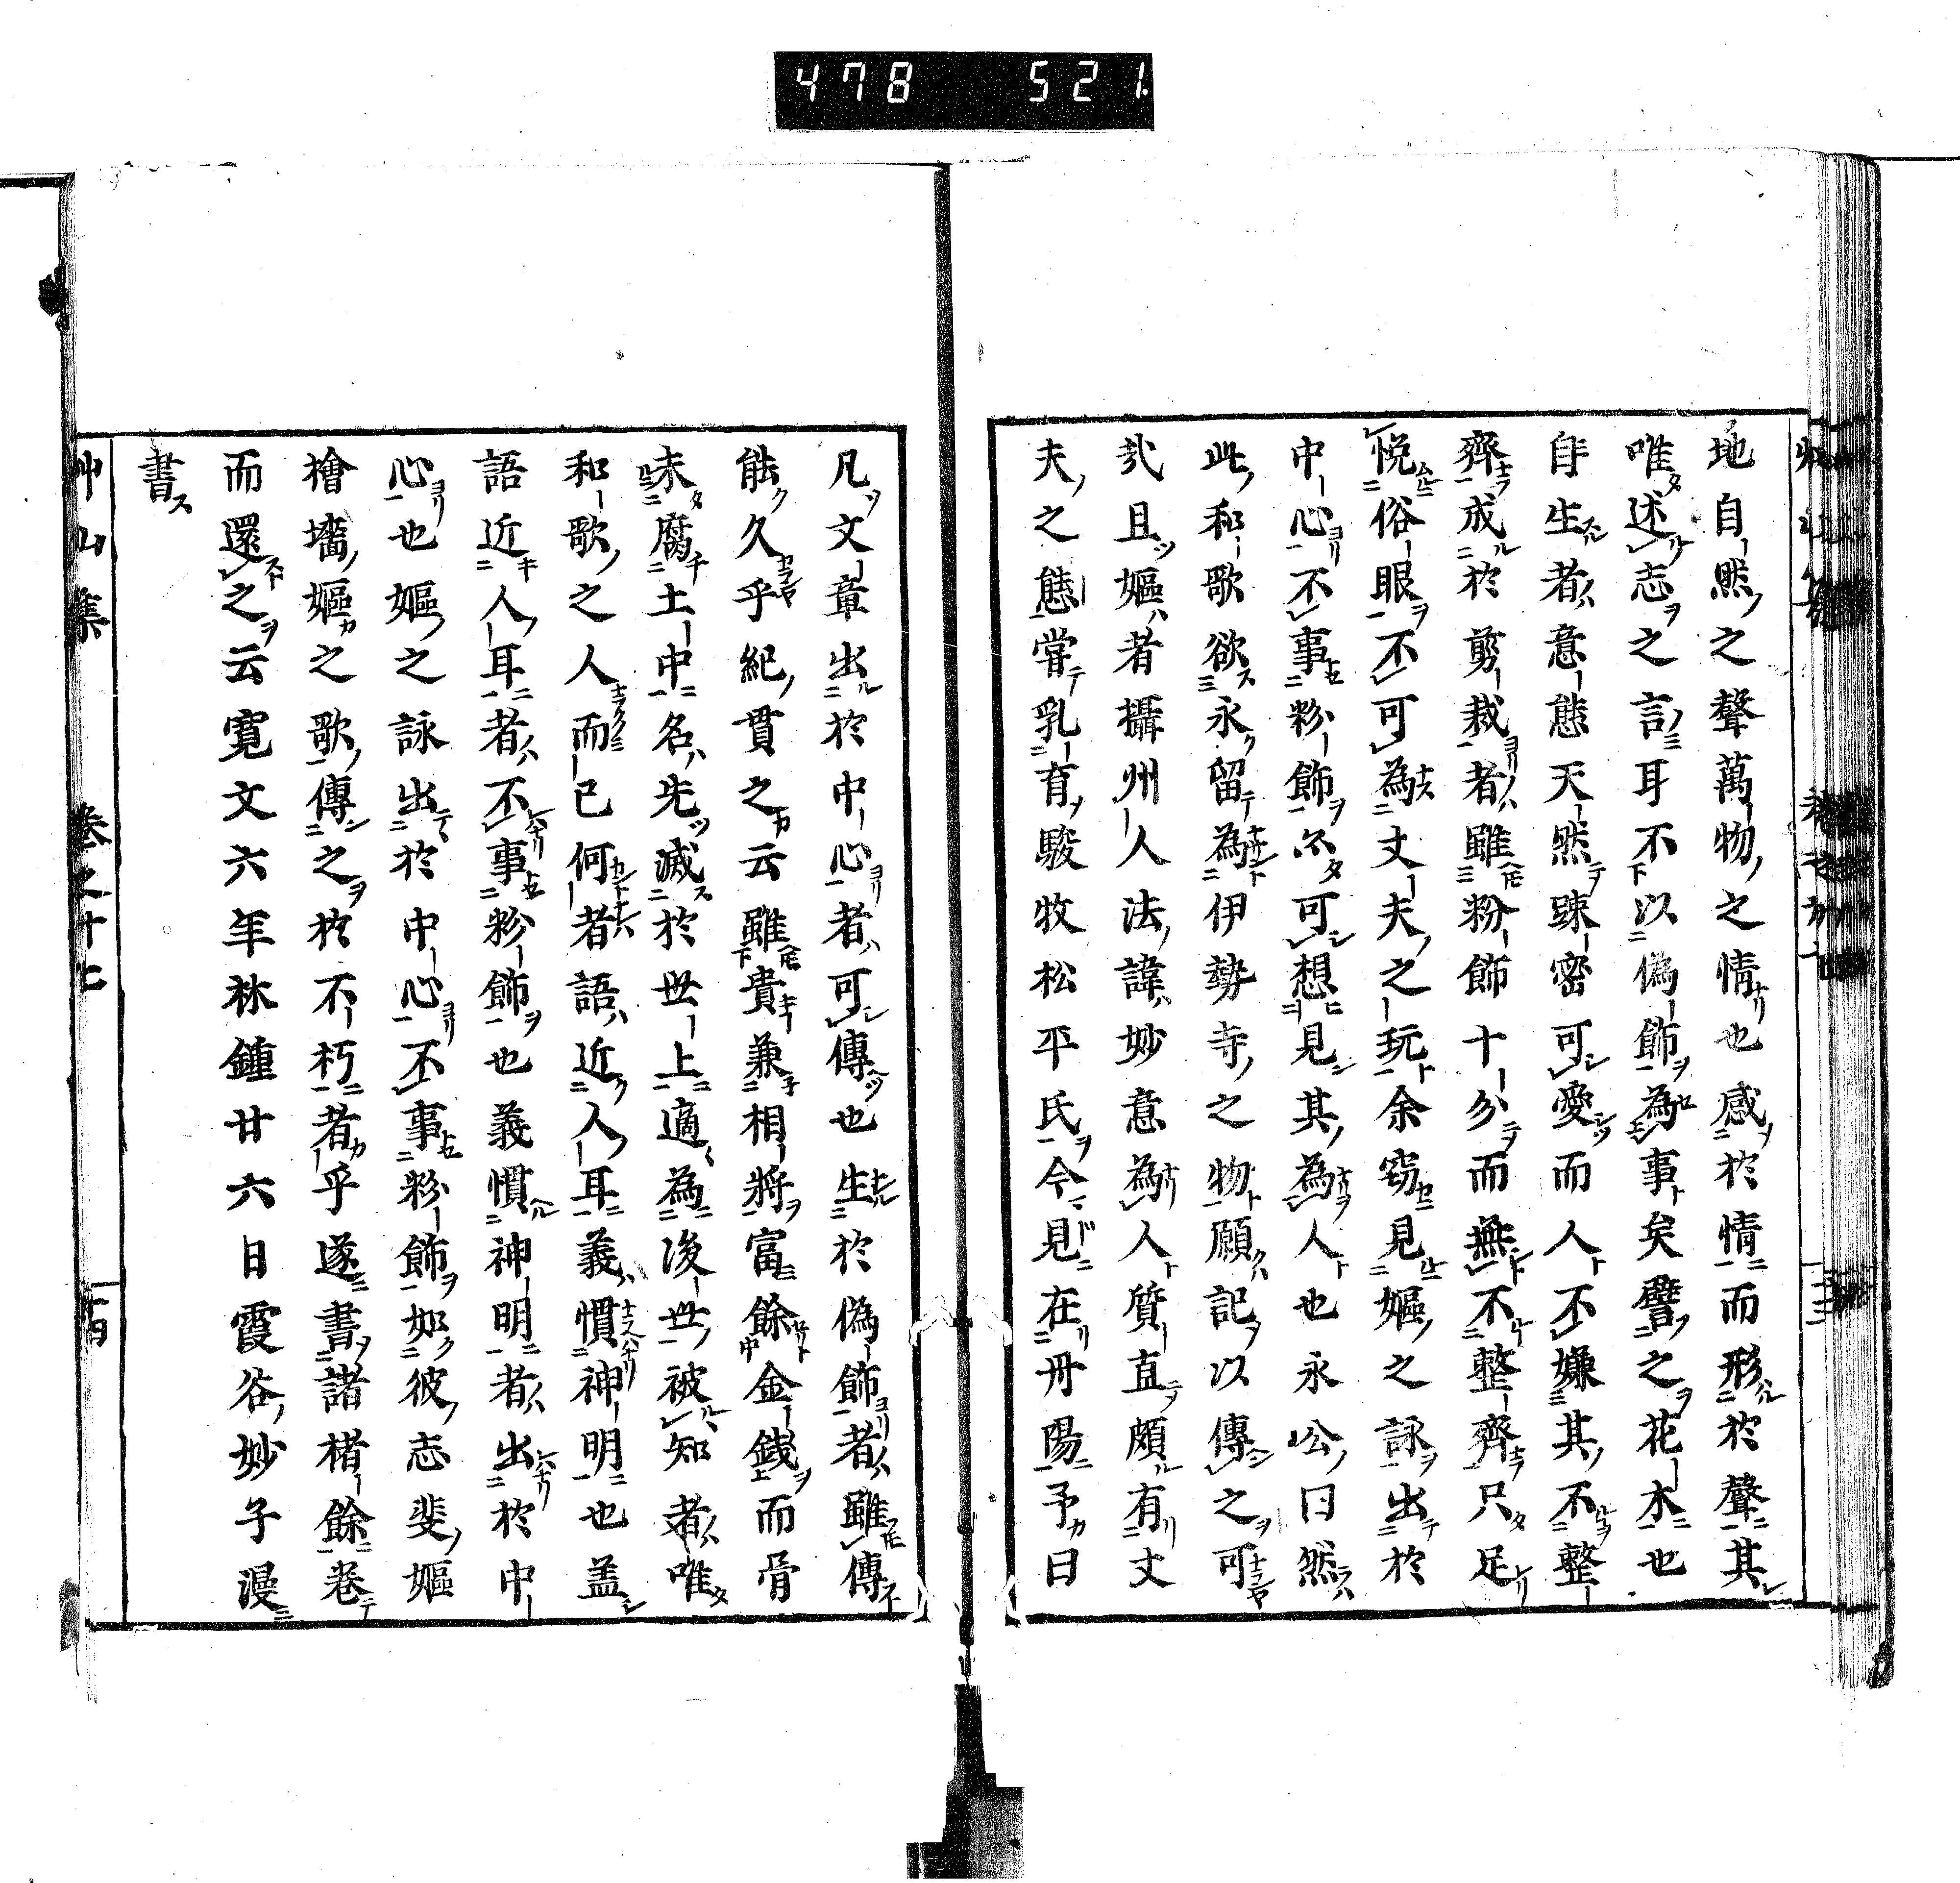 478 521.
地自然之聲萬物之情也感於情而形於聲其
唯述志之言耳不以偽飾為事矣譬之花木也
自生者意態天然踈密可愛而人不嫌其不整
齊成於剪裁者雖粉飾十分而無不整齊只足
悦俗眼不可為丈夫之玩余窃見嫗之詠出於
中心不事粉飾尒可想見其為人也永公曰然
此和歌欲永留為伊勢寺之物願記以傳之可
哉且嫗者攝州人法諱妙意為人質直頗有丈
夫之態嘗乳育駿牧松平氏今見在丹陽予曰
凡文章出於中心者可傳也生於偽飾者雖傳
能久乎紀貫之云雖貴兼相將富餘金錢而骨
未腐土中名先滅於世上適為後世被知者唯
和歌之人而已何者語近人耳義慣神明也盖
語近人耳者不事粉飾也義慣神明者出於中
心也嫗之詠出於中心不事粉飾如彼志斐嫗
檜墻嫗之歌傳之於不朽者乎遂書諸楮餘卷
而還之云寛文六年林鍾廿六日霞谷妙子漫
書
艸山集 卷之十七 十四